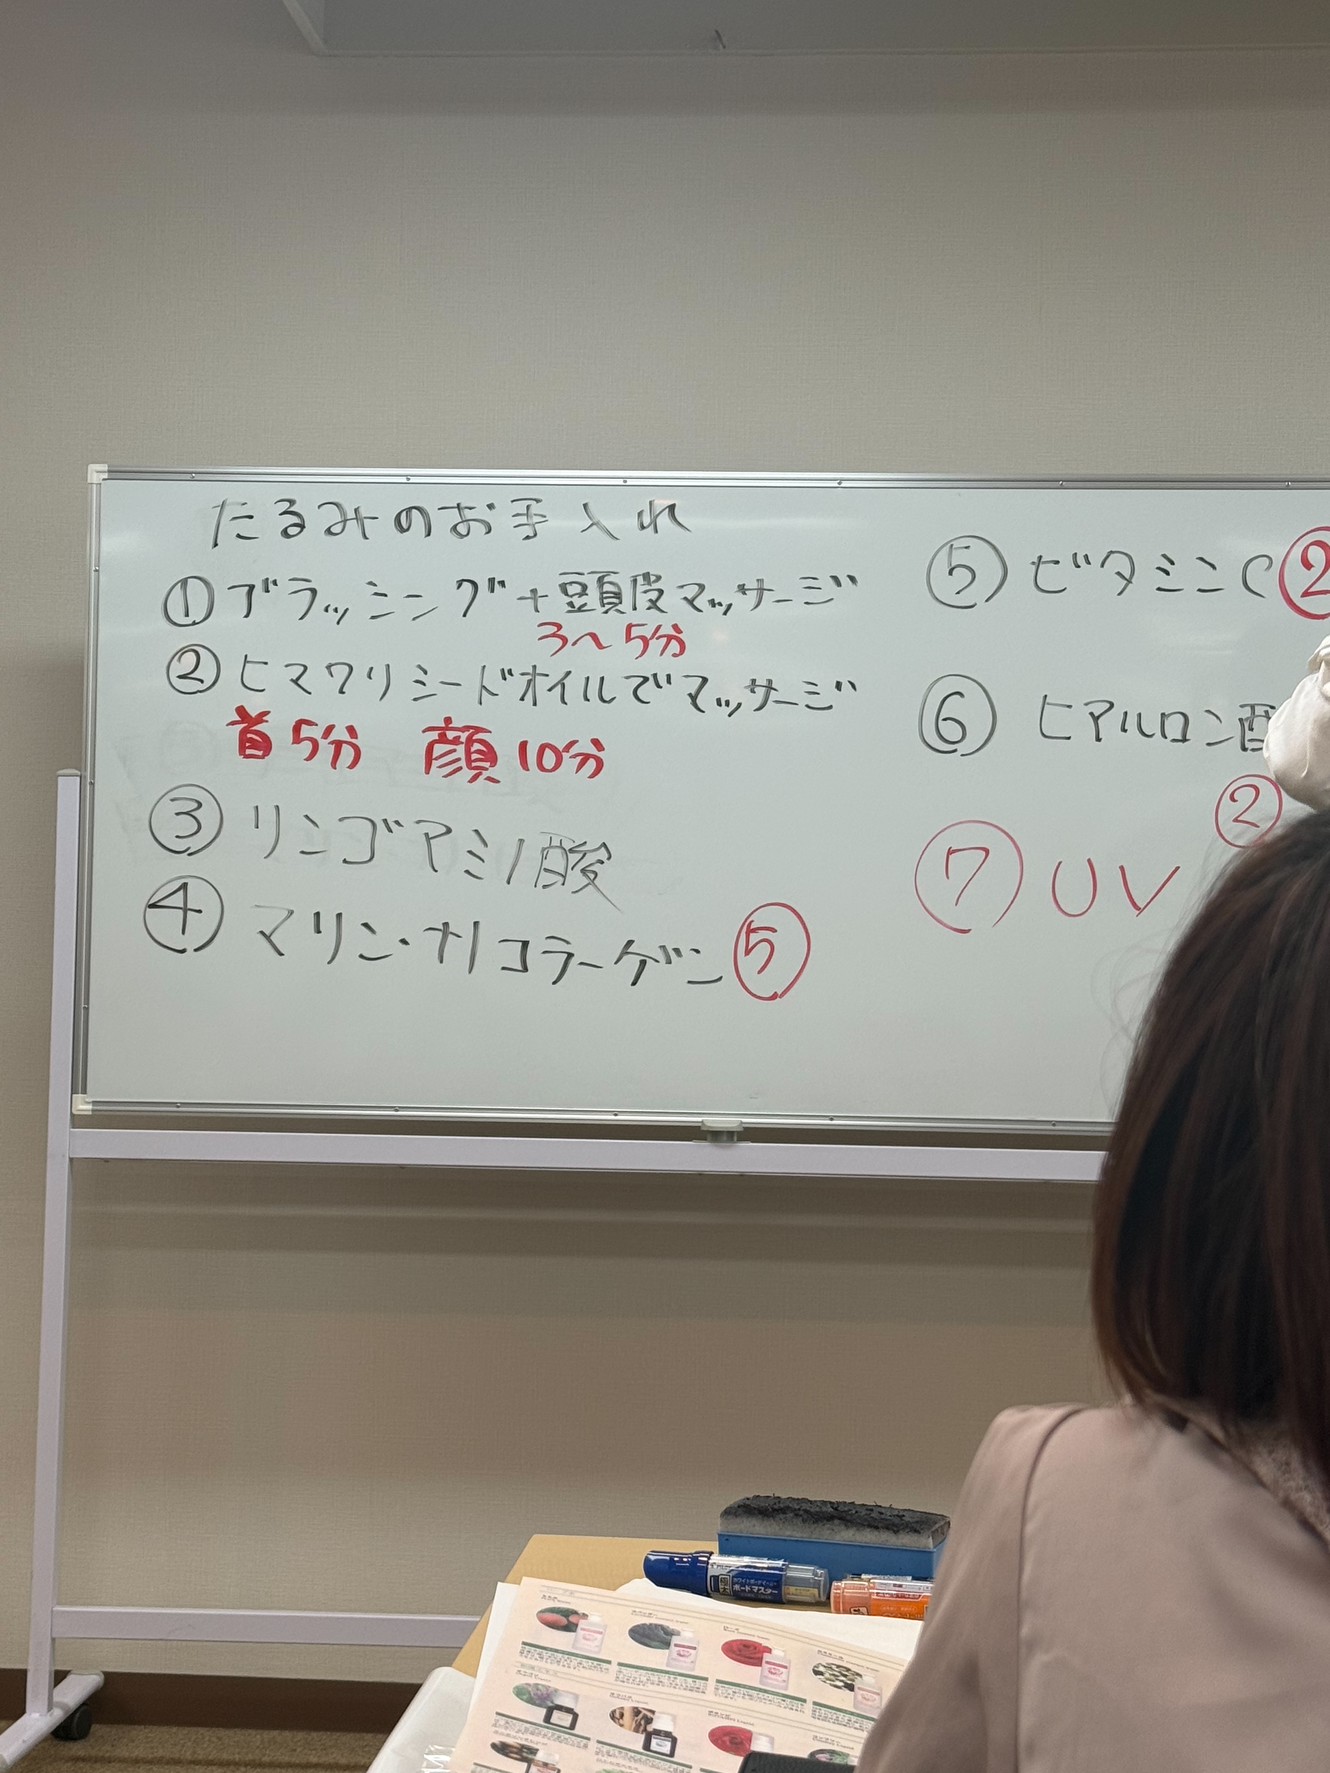 たるみのお手入れ
①ブラッシング+頭皮マッサージ
3〜5分
②ヒマワリシードオイルでマッサージ
首5分 顔10分
③リンゴアミノ酸
④マリン・ナノコラーゲン⑤
⑤ビタミンC②
⑥ヒアルロン
②
⑦UV
ボードマスター